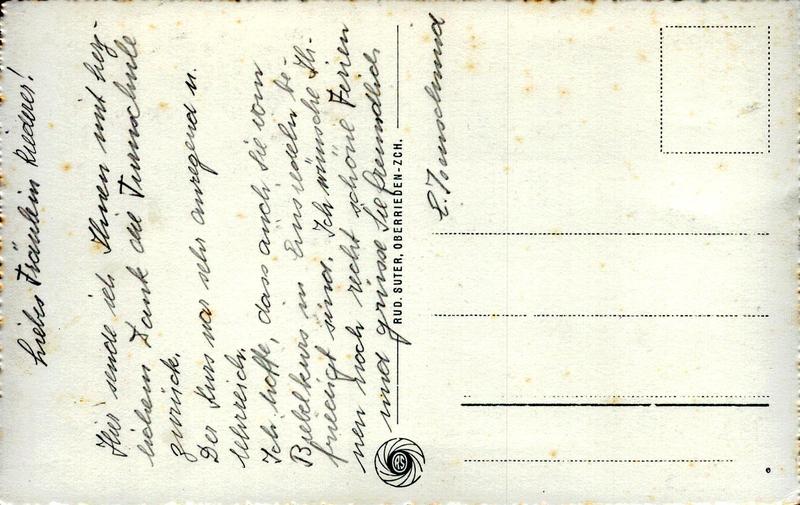 Liebes Fräulein Riederer!
Hier sende ich Ihnen mit herz-
lichem Dank die Turnschule
zurück.
Der Kurs war sehr anregend u.
lehrreich.
Ich hoffe, dass auch Sie vom
Bibelkurs in Einsiedeln be-
friedigt sind. Ich wünsche Ih-
nen noch recht schöne Ferien
und grüsse Sie freundlich
E.
RUD. SUTER, OBERRIEDEN-ZCH.